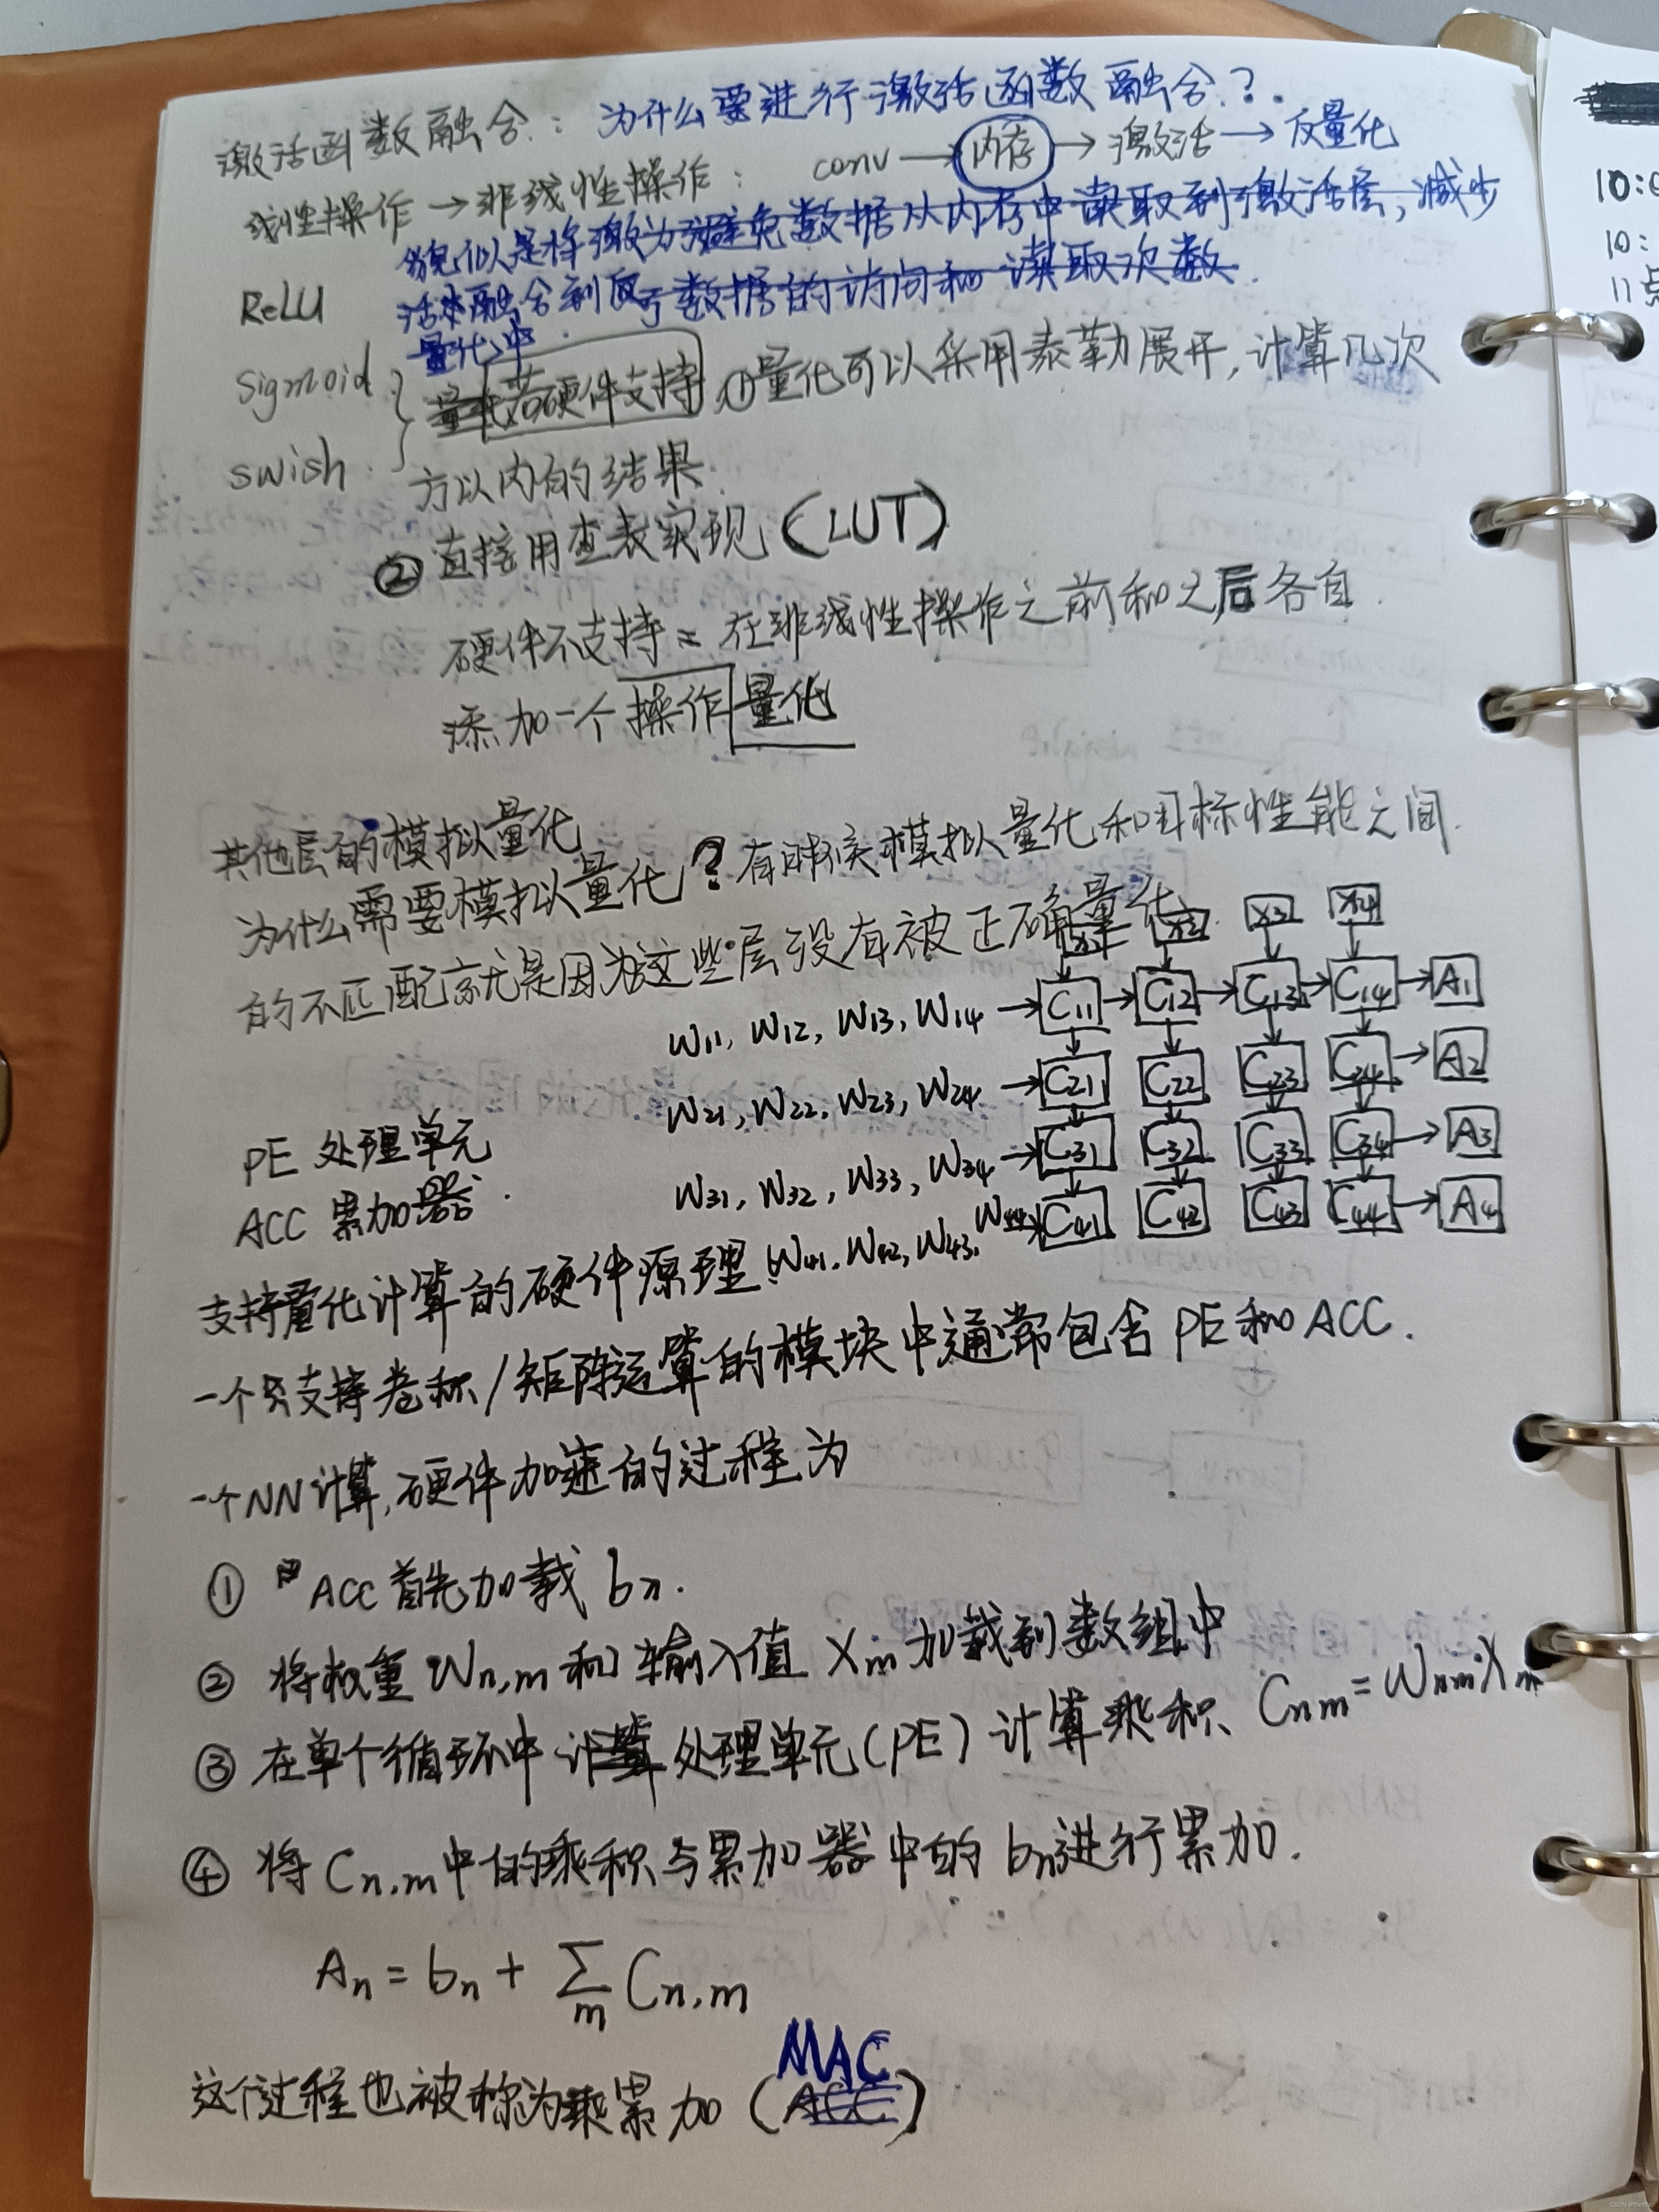 激活函数融合: 为什么要进行激活函数融合?
线性操作→非线性操作: conv→内存→激活→反量化
为了避免数据从内存中读取到激活层,减少
数据的访问和读取次数.
貌似是将激
活来融合到反
量化中.
ReLU
sigmoid
swish
若硬件支持 ①量化可以采用泰勒展开,计算几次
方以内的结果.
② 直接用查表实现(LUT)
硬件不支持= 在非线性操作之前和之后各自
添加一个操作量化
其他层的模拟量化
为什么需要模拟量化? 有时候模拟量化和目标性能之间
的不匹配就是因为这些层没有被正确量化.
X3 X4
W11, W12, W13, W14 → C11 → C12 → C13 → C14 → A1
W21, W22, W23, W24 → C21 C22 C23 C24 → A2
PE 处理单元
W31, W32, W33, W34 → C31 C32 C33 C34 → A3
ACC 累加器.
W41, W42, W43, W44 → C41 C42 C43 C44 → A4
支持量化计算的硬件原理:
一个支持卷积/矩阵运算的模块中通常包含PE和ACC.
一个NN计算,硬件加速的过程为
① ACC首先加载 bn.
② 将权重 Wn,m 和输入值 Xm 加载到数组中
③ 在单个循环中 处理单元(PE)计算乘积、Cnm=Wnm·Xm
④ 将 Cn,m中的乘积与累加器中的 bn进行累加.
An = bn + ∑m Cn,m
这个过程也被称为乘累加 (MAC)